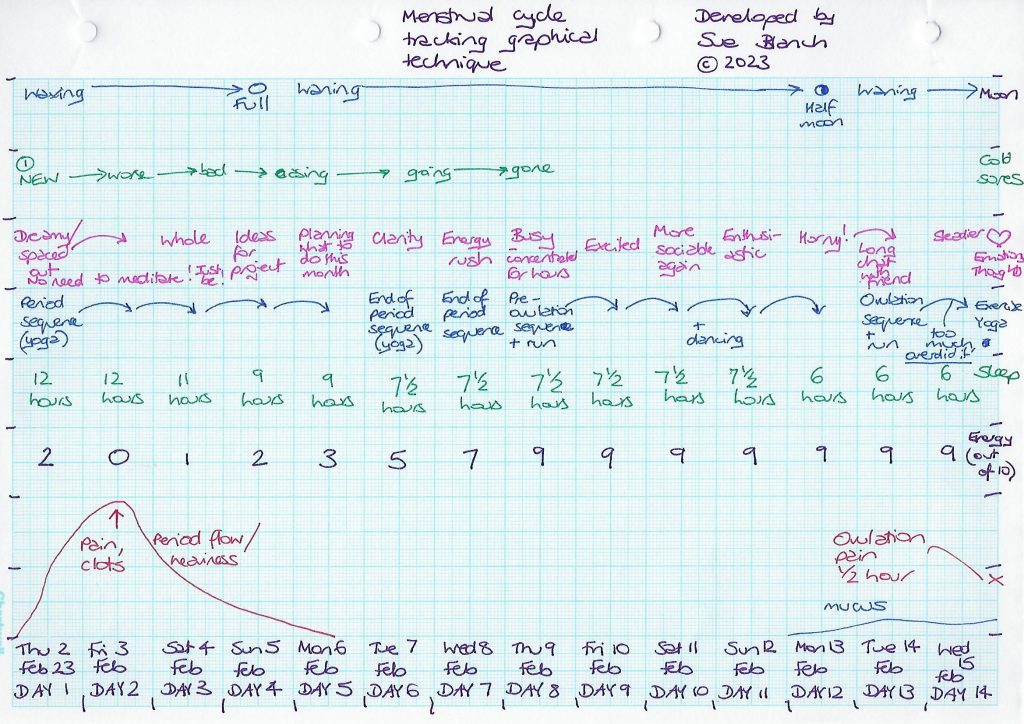 Menstrual cycle
tracking graphical
technique
Developed by
Sue Branch
© 2023
Waxing
Full
Waning
Half
moon
Waning
Moon
1
NEW
worse
bad
easing
going
gone
Cold
sores
Dreamy/
spaced
out
No need to meditate! Just
be!
Whole
Ideas
for
project
Planning
what to
do this
month
Clarity
Energy
rush
Busy
- concentrated
for hours
Excited
More
sociable
again
Enthusi-
astic
Horny!
Long
chat
with
friend
Steadier
Emotions
Thoughts
Period
sequence
(yoga)
End of
period
sequence
(yoga)
End of
period
sequence
Pre-
ovulation
sequence
+ run
+
dancing
Ovulation
sequence
+ run
too
much,
overdid it
Exercise
Yoga
12
hours
12
hours
11
hours
9
hours
9
hours
7½
hours
7½
hours
7½
hours
7½
hours
7½
hours
7½
hours
6
hours
6
hours
6
hours
Sleep
2 0 1 2 3 5 7 9 9 9 9 9 9 9
Energy
(out
of 10)
Pain,
clots
Period flow/
heaviness
Ovulation
pain
½ hour
mucus
Thu 2
Feb 23
DAY 1
Fri 3
Feb
DAY 2
Sat 4
Feb
DAY 3
Sun 5
Feb
DAY 4
Mon 6
Feb
DAY 5
Tue 7
Feb
DAY 6
Wed 8
Feb
DAY 7
Thu 9
Feb
DAY 8
Fri 10
Feb
DAY 9
Sat 11
Feb
DAY 10
Sun 12
Feb
DAY 11
Mon 13
Feb
DAY 12
Tue 14
Feb
DAY 13
Wed
15
Feb
DAY 14